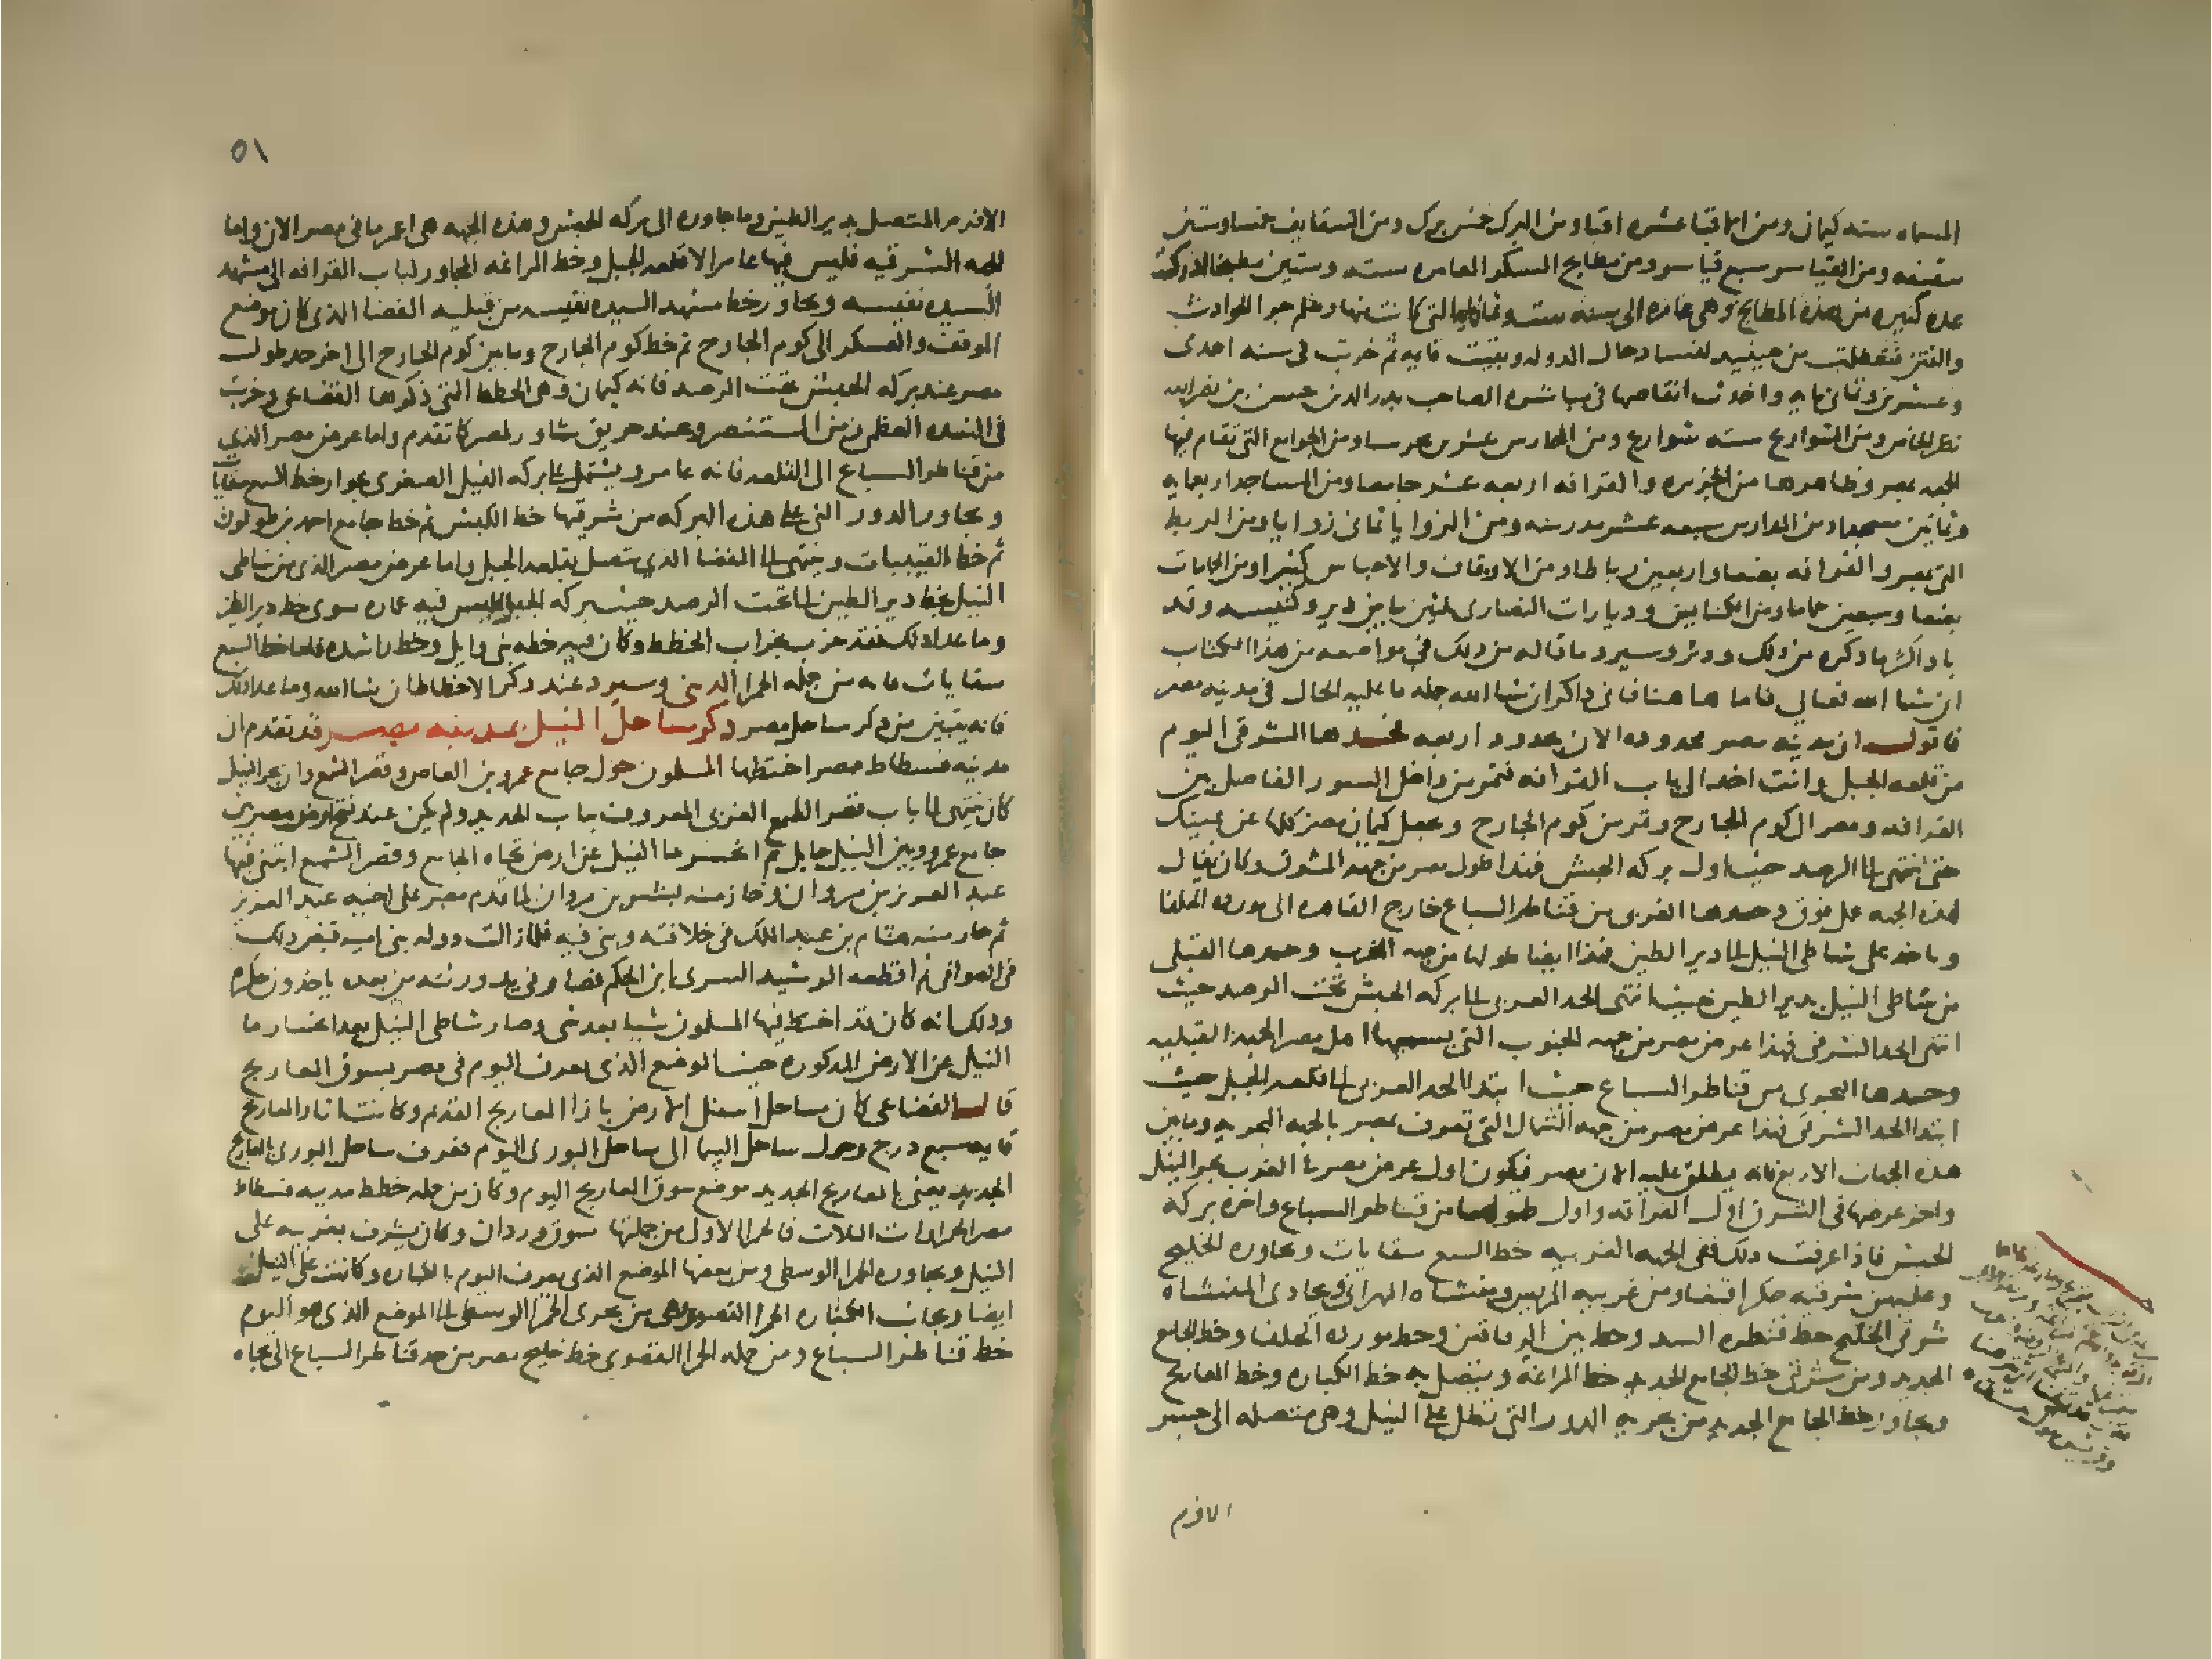 المسماه سته كيمان ومن الاقبا عشره اقبا ومن البرك خمس برك ومن السقايف خمسا وستين
سقيفه ومن القياسر سبع قياسر ومن مطابخ السكر العامره سته وستين مطبخا
عده كثيره من هذه المطابخ وهى عامره الى سنه ست وثمانمايه التى كانت فيها وعظم جو الحوادث
والفتن فتعطلت من حينيد لفساد حال الدوله وبقيت قايمه ثم خربت فى سنه احدى
وعشرين وثمانى مايه واخذت انقاضها فى مباشره الصاحب بدر الدين حسن بن نصر الله
ومن الشوارع سته شوارع ومن المحارس عشرين محرسا ومن الجوامع التى تقام فيها
الجمعه بمصر وظاهرها من الجزيره والقرافه اربعه عشر جامعا ومن المساجد اربعمايه
وثمانين مسجدا ومن المدارس سبعه عشر مدرسه ومن الزوايا ثمانى زوايا ومن الربط
التى بمصر والقرافه بضعا واربعين رباطا ومن الاوقاف والاحباس كثيرا ومن الحمامات
بضعا وسبعين حماما ومن الكنايس وديارات النصارى ثلثين ما بين دير وكنيسه وقد
باد اكثرها ذكره من ذلك ودثر وسيرد ما قاله من ذلك فى مواضعه من هذا الكتاب
ان شا الله تعالى فاما ها هنا فانى ذاكر ان شا الله جمله ما عليه الحال فى مدينه مصر
فاقول ان مدينه مصر محدوده الان بحدود اربعه فحدها الشرقى اليوم
من قلعه الجبل وانت اخد الى باب القرافه فتمر من داخل السور الفاصل بين
القرافه ومصر الى كوم الجارح وتمر من كوم الجارح وتجعل كيمان مصر كلها عن يمينك
حتى تنتهى الى الرصد حيث اول بركه الحبش فهذا طول مصر من جهه المشرق وكان يقال
لهذه الجهه عمل فوق وحدها الغربى من قناطر السباع خارج القاهره الى مورده الحلفا
وياخذ على شاطى النيل الى دير الطين فهذا ايضا طولها من جهه الغرب وحدها القبلى
من شاطى النيل بدير الطين حيث انتهى الحد الغربى الى بركه الحبش تحت الرصد حيث
انتهى الحد الشرقى فهذا عرض مصر من جهه الجنوب التى يسميها اهل مصر الجهه القبليه
وحدها البحرى من قناطر السباع حيث ابتدا الحد الغربى الى قلعه الجبل حيث
ابتدا الحد الشرقى فهذا عرض مصر من جهه الشمال التى تعرف بمصر بالجهه البحريه وما بين
هذه الجهات الاربع فانه يطلق عليه الان مصر فيكون اول عرض مصر فى الغرب بحر النيل
واخر عرضها فى الشرق اول القرافه واول طولها من قناطر السباع واخره بركه
الحبش فاذا عرفت ذلك ففى الجهه الغربيه خط السبع سقايات ويجاوره الخليج
وعليه من شرقيه حكر اقبغا ومن غربيه المريس ومنشاه المهرانى ويحاذى المنشاه
شرقى الخليج خط قنطره السد وخط بين الزقاقين وخط مورده الحلفا وخط الجامع
الجديد ومن شرقى خط الجامع الجديد خط المراغه ويتصل به خط الكباره وخط المعاريج
ويجاور خط الجامع الجديد من بحريه الدور التى تطل على النيل وهى متصله الى جسر
الافرم
٥١
الافرم المتصل بدير الطين وما جاوره الى بركه الحبش وهذه الجهه هى اعمر ما فى مصر الان واما
الجهه الشرقيه فليس فيها عامر الا قلعه الجبل وخط المراغه المجاور لباب القرافه الى مشهد
السيده نفيسه ويجاور خط مشهد السيده نفيسه من قبليه الفضا الذى كان موضع
الموقف والعسكر الى كوم الجارح ثم خط كوم الجارح وما بين كوم الجارح الى اخر حد طول
مصر عند بركه الحبش تحت الرصد فانه كيمان وهى الخطط التى ذكرها القضاعى وخربت
فى الشده العظمى زمن المستنصر وعند حريق شاور لمصر كما تقدم واما عرض مصر الذى
من قناطر السباع الى القلعه فانه عامر ويشتمل على بركه الفيل الصغرى بجوار خط السبع سقايات
ويجاور الدور التى على هذه البركه من شرقيها خط الكبش ثم خط جامع احمد بن طولون
ثم خط القبيبات وينتهى الى الفضا الذى يتصل بقلعه الجبل واما عرض مصر الذى من شاطى
النيل بخط دير الطين الى تحت الرصد حيث بركه الحبش فليس فيه عماره سوى خط دير الطين
وما عدا ذلك فقد خرب بخراب الخطط وكان فيه خطه بنى وايل وخط راشده فاما خط السبع
سقايات فانه من جمله الحمرا الدنيا وسيرد عند ذكر الاخطاط ان شا الله وما عدا ذلك
فانه يتبين من ذكر ساحل مصر ذكر ساحل النيل بمدينه مصر قد تقدم ان
مدينه فسطاط مصر اختطها المسلمون حول جامع عمرو بن العاص وقصر الشمع وان بحر النيل
كان ينتهى الى باب قصر الشمع الغربى المعروف بالباب الجديد ولم يكن عند فتح ارض مصر بين
جامع عمرو وبين النيل حايل ثم انحسر ما النيل عن ارض تجاه الجامع وقصر الشمع ابتنى فيها
عبد العزيز بن مروان وحاز منه بشر بن مروان لما قدم مصر على اخيه عبد العزيز
ثم حاز منه هشام بن عبد الملك فى خلافته وبنى فيه فلما زالت دوله بنى اميه قبض ذلك
فى الصوافى ثم اقطعه الرشيد السرى ابن الحكم فصار فى يد ورثته من بعده ياخذون حكره
وذلك انه كان قد اختط فيها المسلمون شيا بعد شى وصار شاطى النيل بعد انحسار ما
النيل عن الارض المذكوره حيث الموضع الذى يعرف اليوم فى مصر بسوق المعاريج
قال القضاعى كان ساحل اسفل الارض بازا المعاريج القديم وكانت اثار المعاريج
قايمه سبع درج وحول ساحل البيما الى ساحل البورى اليوم فعرف ساحل البورى بالمعاريج
الجديد يعنى بالمعاريج الجديد موضع سوق المعاريج اليوم وكان من جمله خطط مدينه فسطاط
مصر الحمراوات الثلاث فالحمرا الاولى من جملتها سوق وردان وكان يشرف بغربيه على
النيل ويجاوره الحمرا الوسطى ومن بعضها الموضع الذى يعرف اليوم بالكباره وكانت على النيل
ايضا وبجانب الكباره الحمرا القصوى وهى من بحرى الحمرا الوسطى الى الموضع الذى هو اليوم
خط قناطر السباع ومن جمله الحمرا القصوى خط خليج مصر من حد قناطر السباع الى تجاه